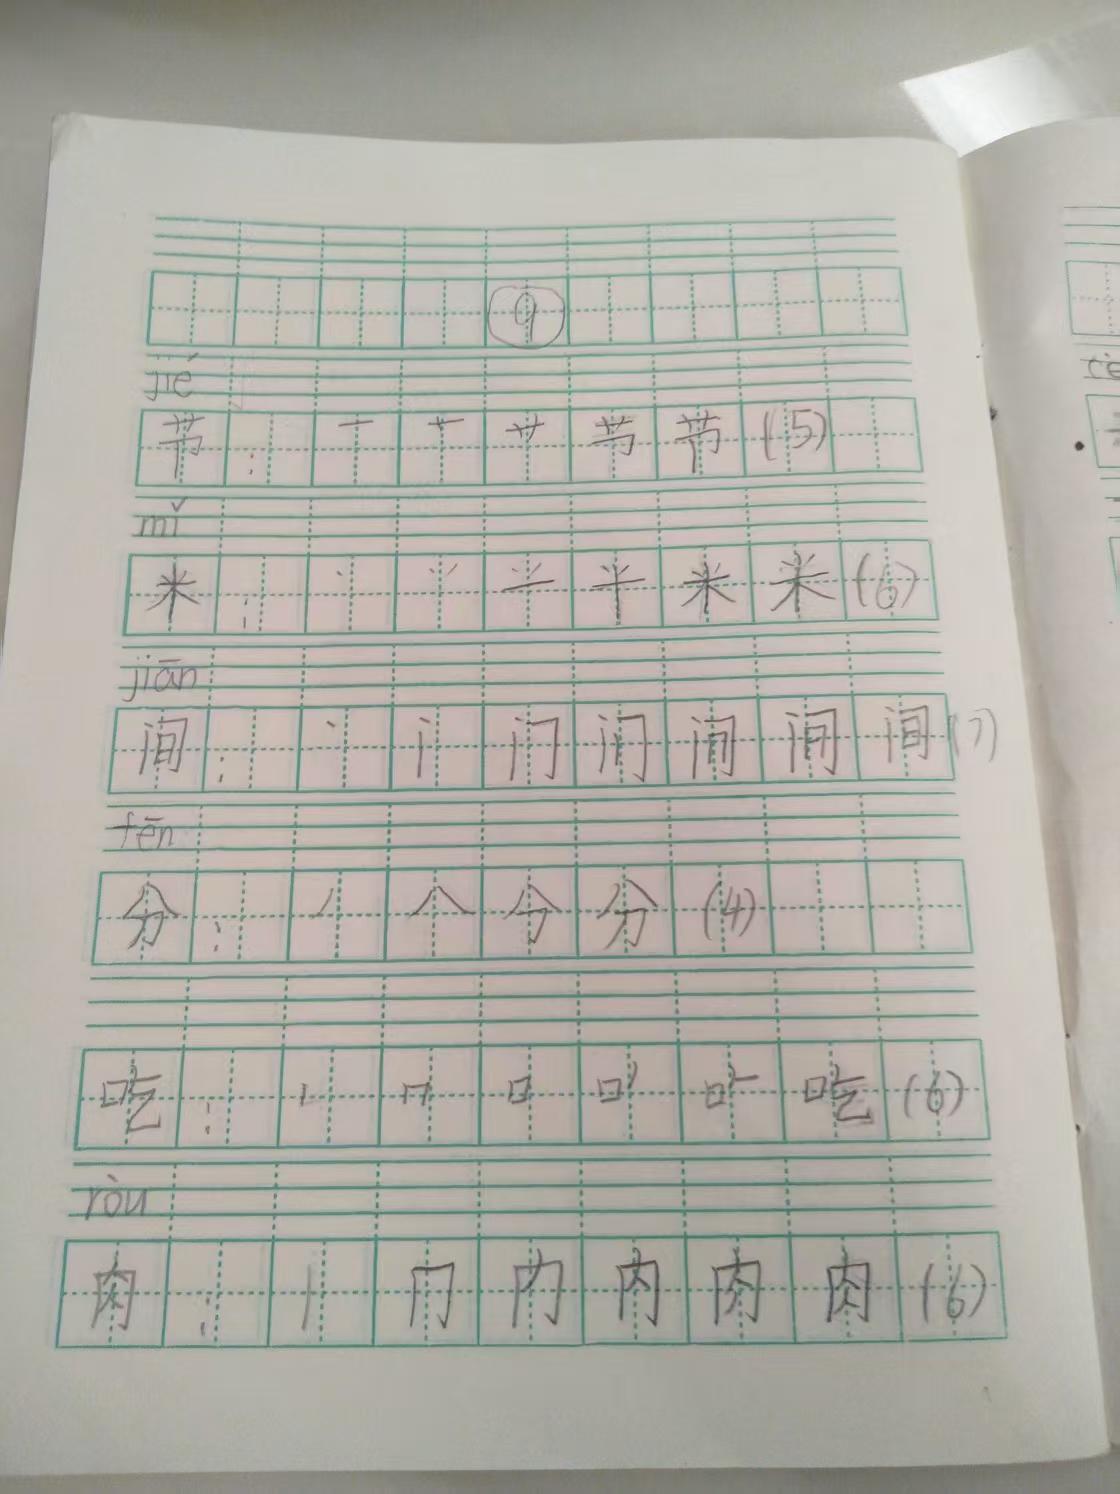 9
jié
节 : 一 十 艹 节 节 (5)
mǐ
米 : 丶 丷 半 米 米 (6)
jiān
间 : 丶 门 门 间 间 间 (7)
fēn
分 : 丿 八 今 分 (4)
吃 : 口 吃 (6)
ròu
肉 : 丨 冂 内 内 肉 肉 (6)